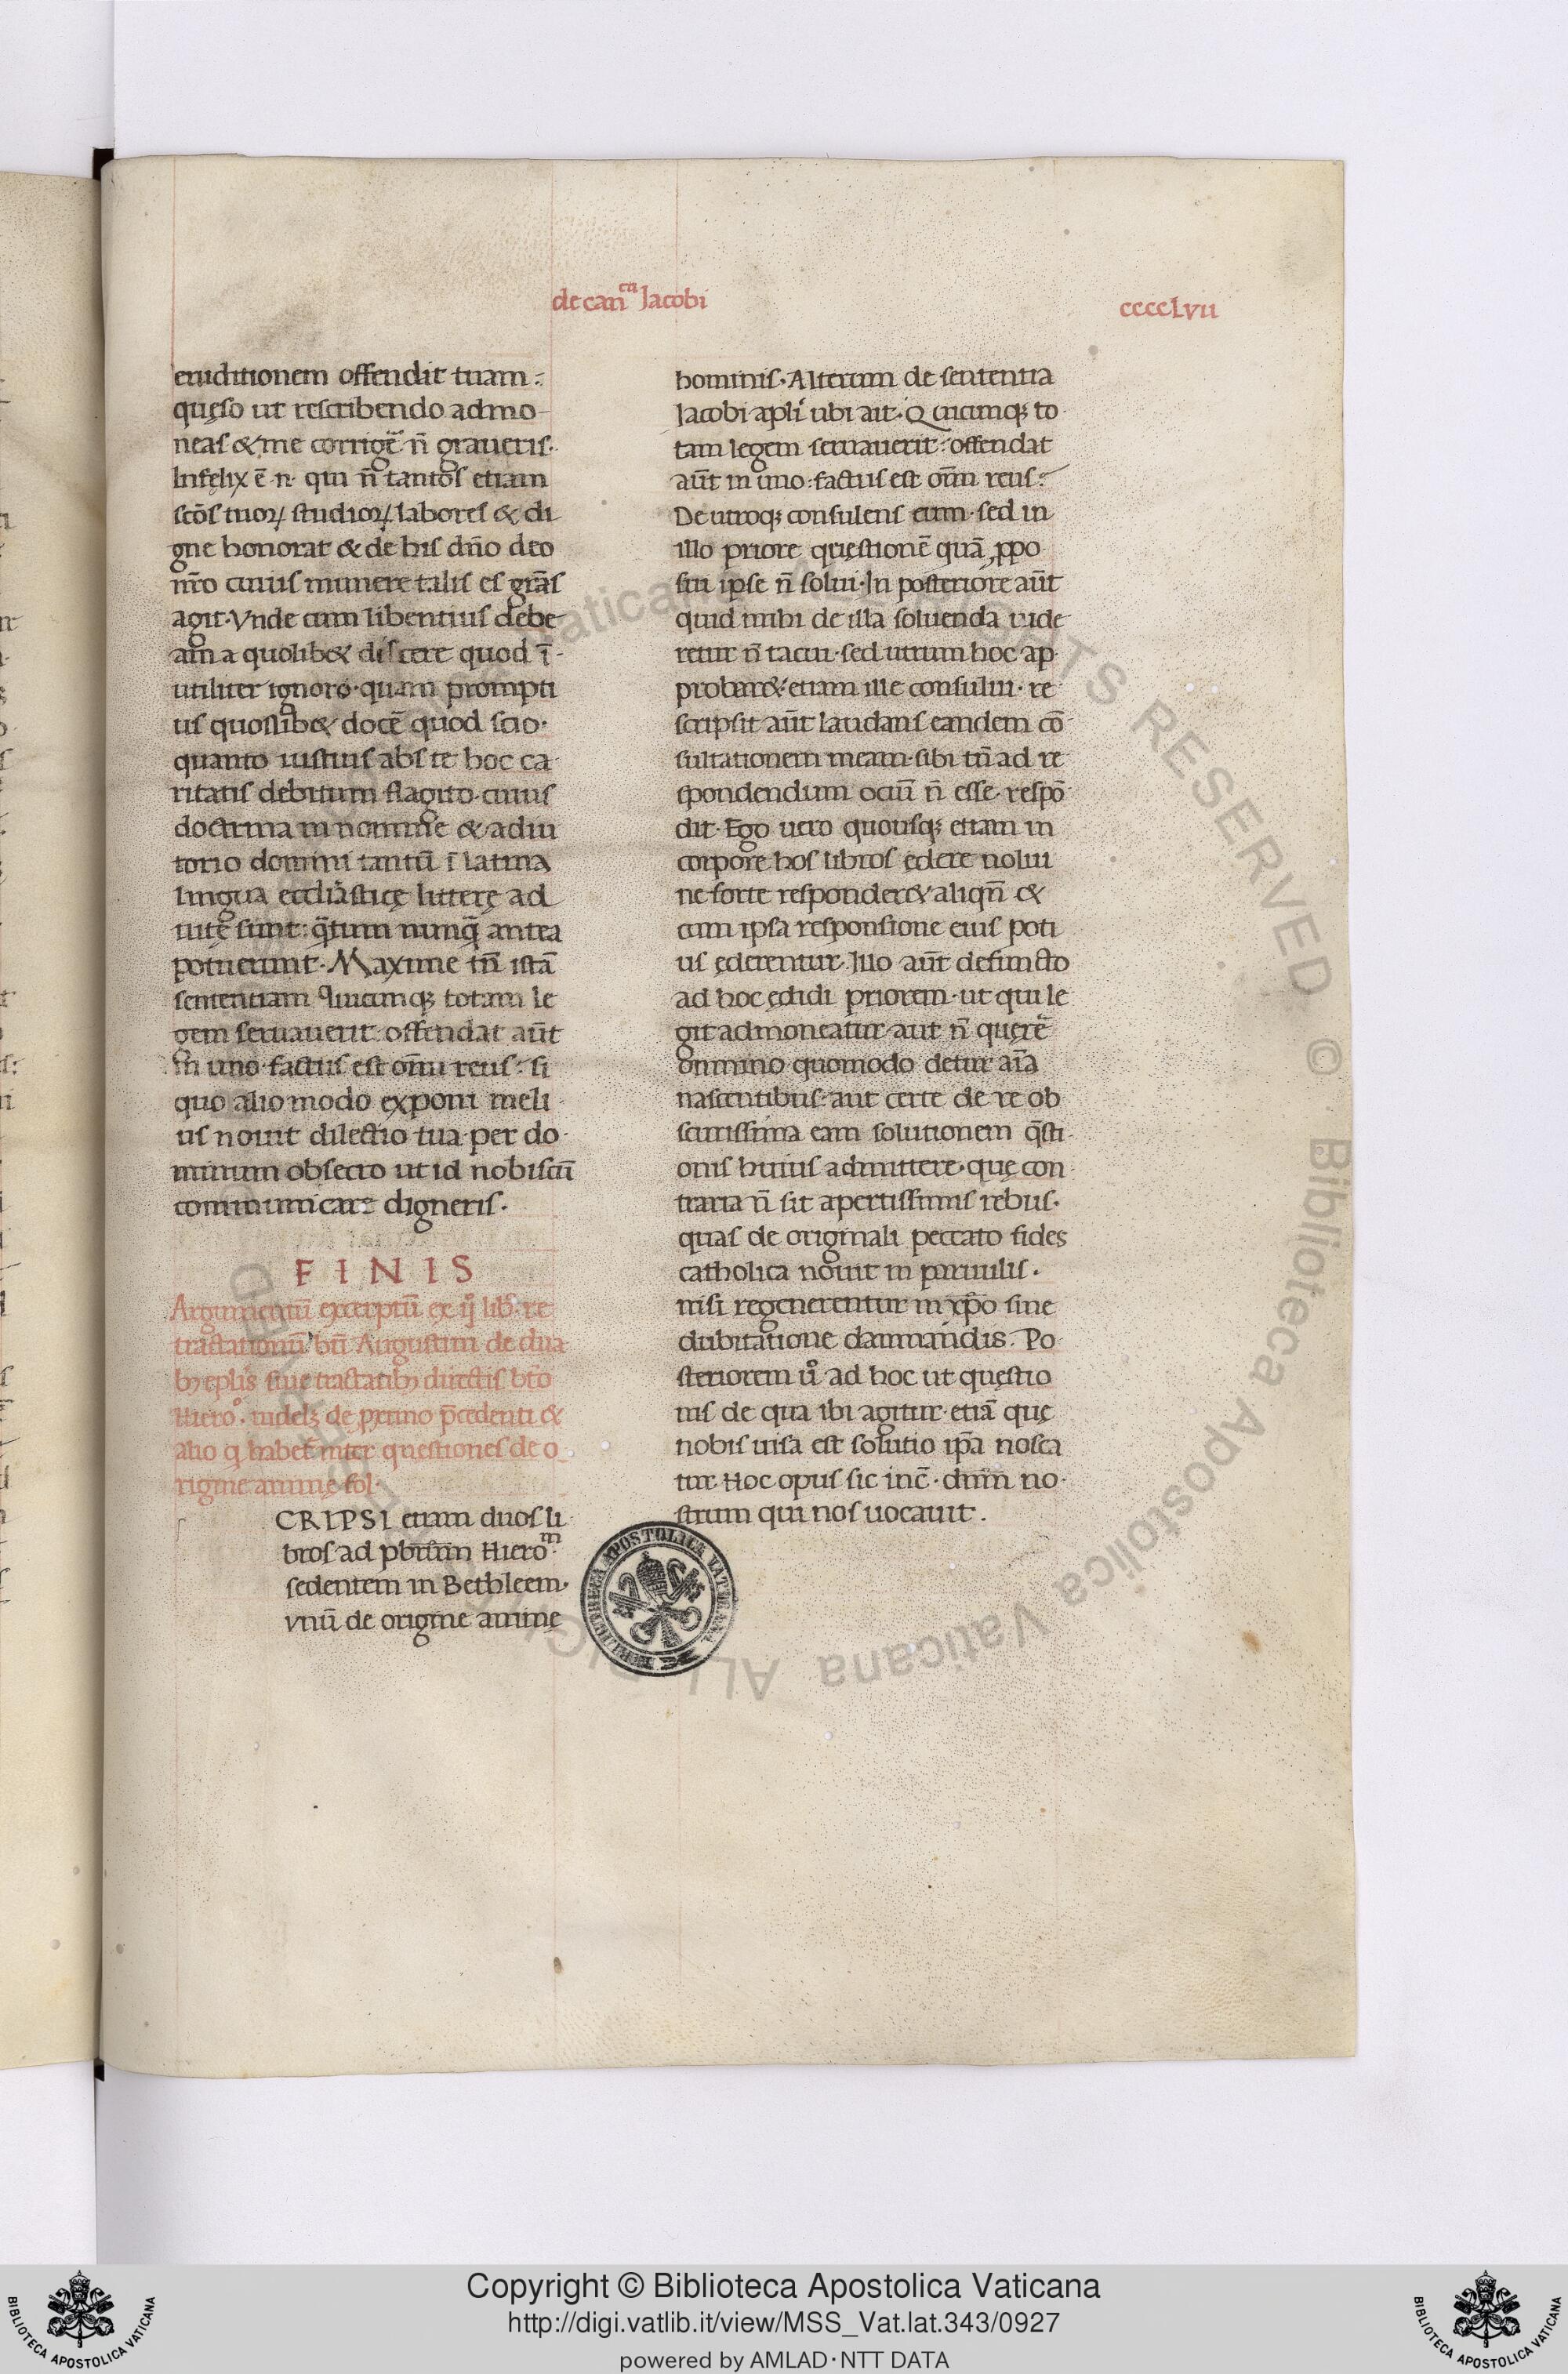 de canca Jacobi
ccccLvii
eruditionem offendit tuam:
quęso ut rescribendo admo-
neas & me corrigē n̄ graveris.
Infelix ē n. qui n̄ tantos etiam
scōs tuoꝝ studioꝝ labores & di
gne honorat & de his dn̄o deo
nr̄o cuius munere talis es grās
agit. Vnde cum libentius debe
am a quolib& discere quod ī-
utiliter ignoro. quam prompti
us quoslib& docē quod scio.
quanto iustius abs te hoc ca-
ritatis debitum flagito. cuius
doctrina in nomine & adiu
torio domini tantū ī latina
lingua eccliasticę litterę ad
iutę sunt: q̄tum nunq̄ antea
potuerunt. Maxime tn̄ istā
sententiam Quicunqꝫ totam le
gem servauerit. offendat aūt
in uno. factus est oīm reus: si
quo alio modo exponi meli
us nouit dilectio tua. per do-
minum obsecro ut id nobiscū
communicare digneris.
FINIS
Argumentū exceptū ex ij lib. re
tractationū bti Augustini de dua
bꝫ eplis siue tractatibꝫ directis bto
Hiero. uidelꝫ de primo p̄cedenti &
alio q habet inter questiones de o
rigine animę fol.
CRIPSI etiam duos li
bros ad pbrm Hierom
sedentem in Bethleem.
vnū de origine animę
hominis. Alterum de sententia
Jacobi apli ubi ait. Quicunqꝫ to
tam legem seruauerit: offendat
aūt in uno: factus est oīm reus:
De utroqꝫ consulens eum. sed in
illo priore quęstionē quā ꝓpo
sui ipse n̄ solui. In posteriore aūt
quid mihi de illa soluenda uide
retur n̄ tacui. sed utrum hoc ap
probar& etiam ille consului. re
scripsit aūt laudans eandem cō
sultationem meam. sibi tn̄ ad re
spondendum ociū n̄ esse respō
dit. Ego uero quousqꝫ etiam in
corpore hos libros ędere nolui
ne forte responder& aliqn̄ &
cum ipsa responsione eius poti
us ęderentur. Illo aūt defuncto
ad hoc ędidi priorem. ut qui le
git admoneatur aut n̄ querē
omnino quomodo detur aīa
nascentibus. aut certe de re ob
scurissima eam solutionem q̄sti
onis huius admittere. quę con
traria n̄ sit apertissimis rebus.
quas de originali peccato fides
catholica nouit in paruulis.
nisi regenerentur in xp̄o sine
dubitatione damnandis. Po
steriorem uo ad hoc ut quęstio
nis de qua ibi agitur. etiā quę
nobis uisa est solutio ip̄a nosca
tur. Hoc opus sic inc̄. dn̄m no
strum qui nos uocauit.
BIBLIOTHECA APOSTOLICA VATICANA
Copyright © Biblioteca Apostolica Vaticana
http://digi.vatlib.it/view/MSS_Vat.lat.343/0927
powered by AMLAD·NTT DATA
BIBLIOTECA APOSTOLICA VATICANA
BIBLIOTECA APOSTOLICA VATICANA